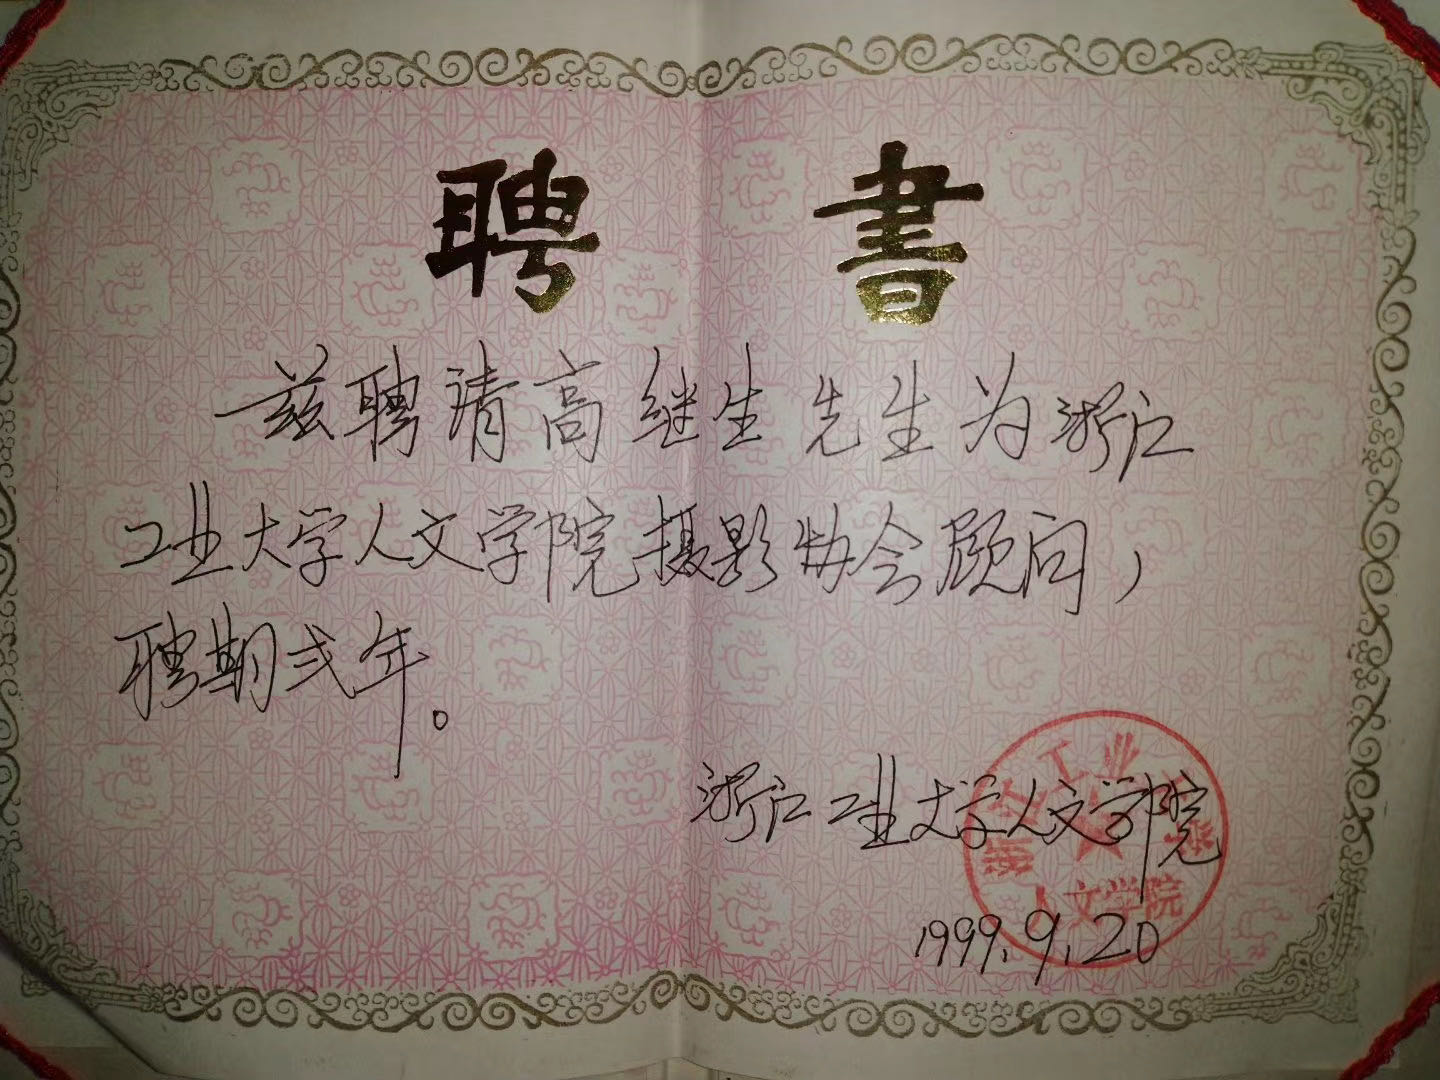 聘書
兹聘请高继生先生为浙江
工业大学人文学院摄影协会顾问，
聘期弍年。
浙江工业大学人文学院
1999.9.20
浙江工业大学
人文学院